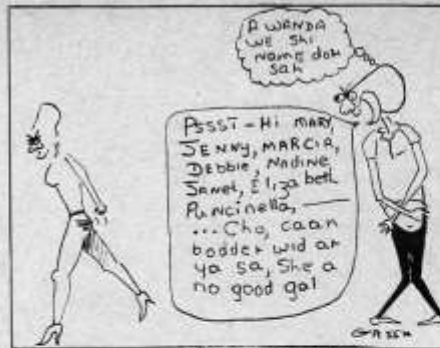 A WANDA
WE Shi
NAME doh
Sah
PSSST - Hi MARY,
JENNY, MARCIA,
DEbbie, NAdiNE
JANet, Eliza beth
PuNciNella, ———
... Cho, caan
bodder wid ar
ya sa, She a
no good gal